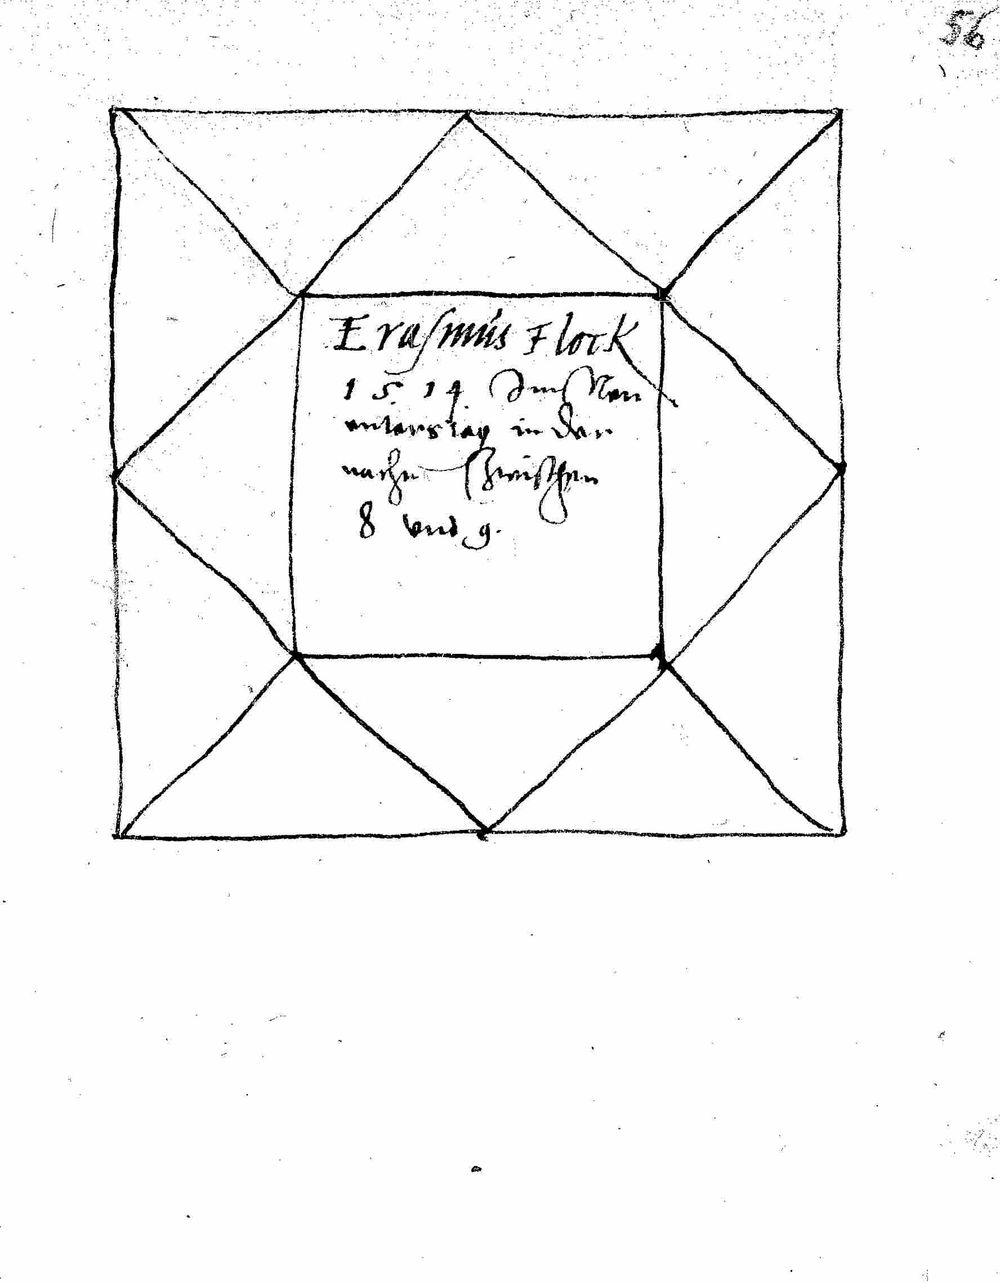 56
Erasmus Flock
1514 Am Neu
enlars tag in der
nacht zwischen
8 vnd 9.